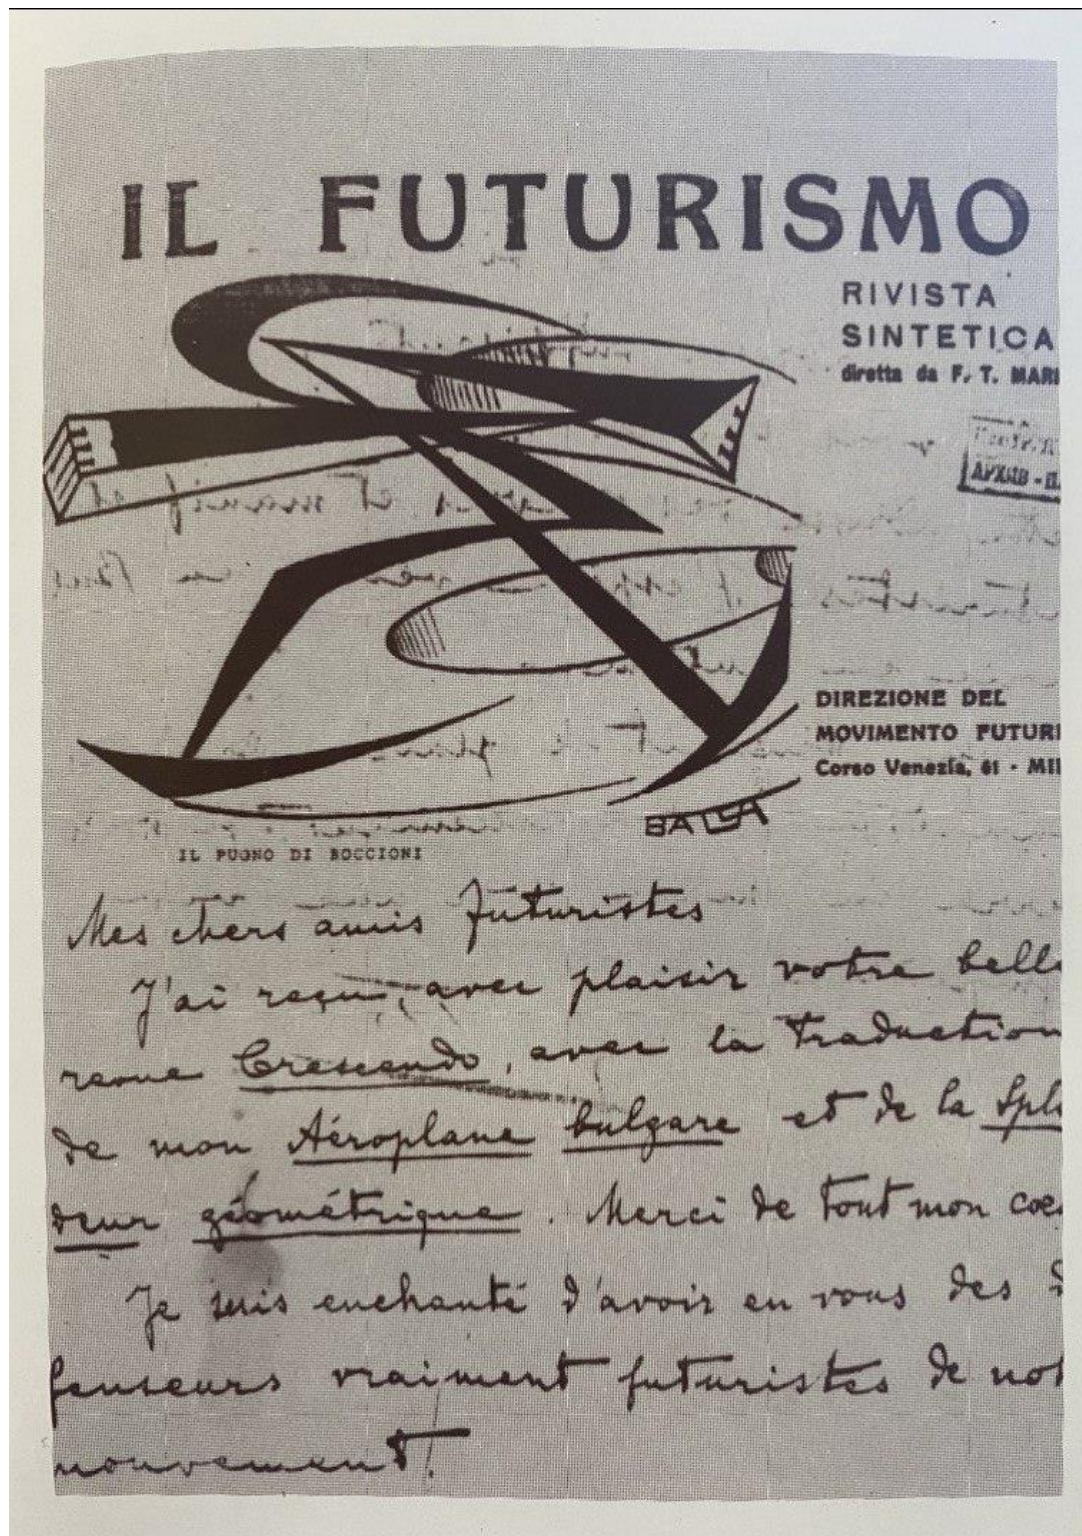 IL FUTURISMO
RIVISTA
SINTETICA
diretta da F. T. MARI
DIREZIONE DEL
MOVIMENTO FUTURI
Corso Venezia, 61 - MIL
BALLA
IL PUGNO DI BOCCIONI
Mes chers amis futuristes
J'ai reçu, avec plaisir votre belle
revue Crescendo, avec la traduction
de mon Aéroplane bulgare et de la Splen
deur géométrique. Merci de tout mon coeu
Je suis enchanté d'avoir en vous des d
fenseurs vraiment futuristes de not
mouvement.